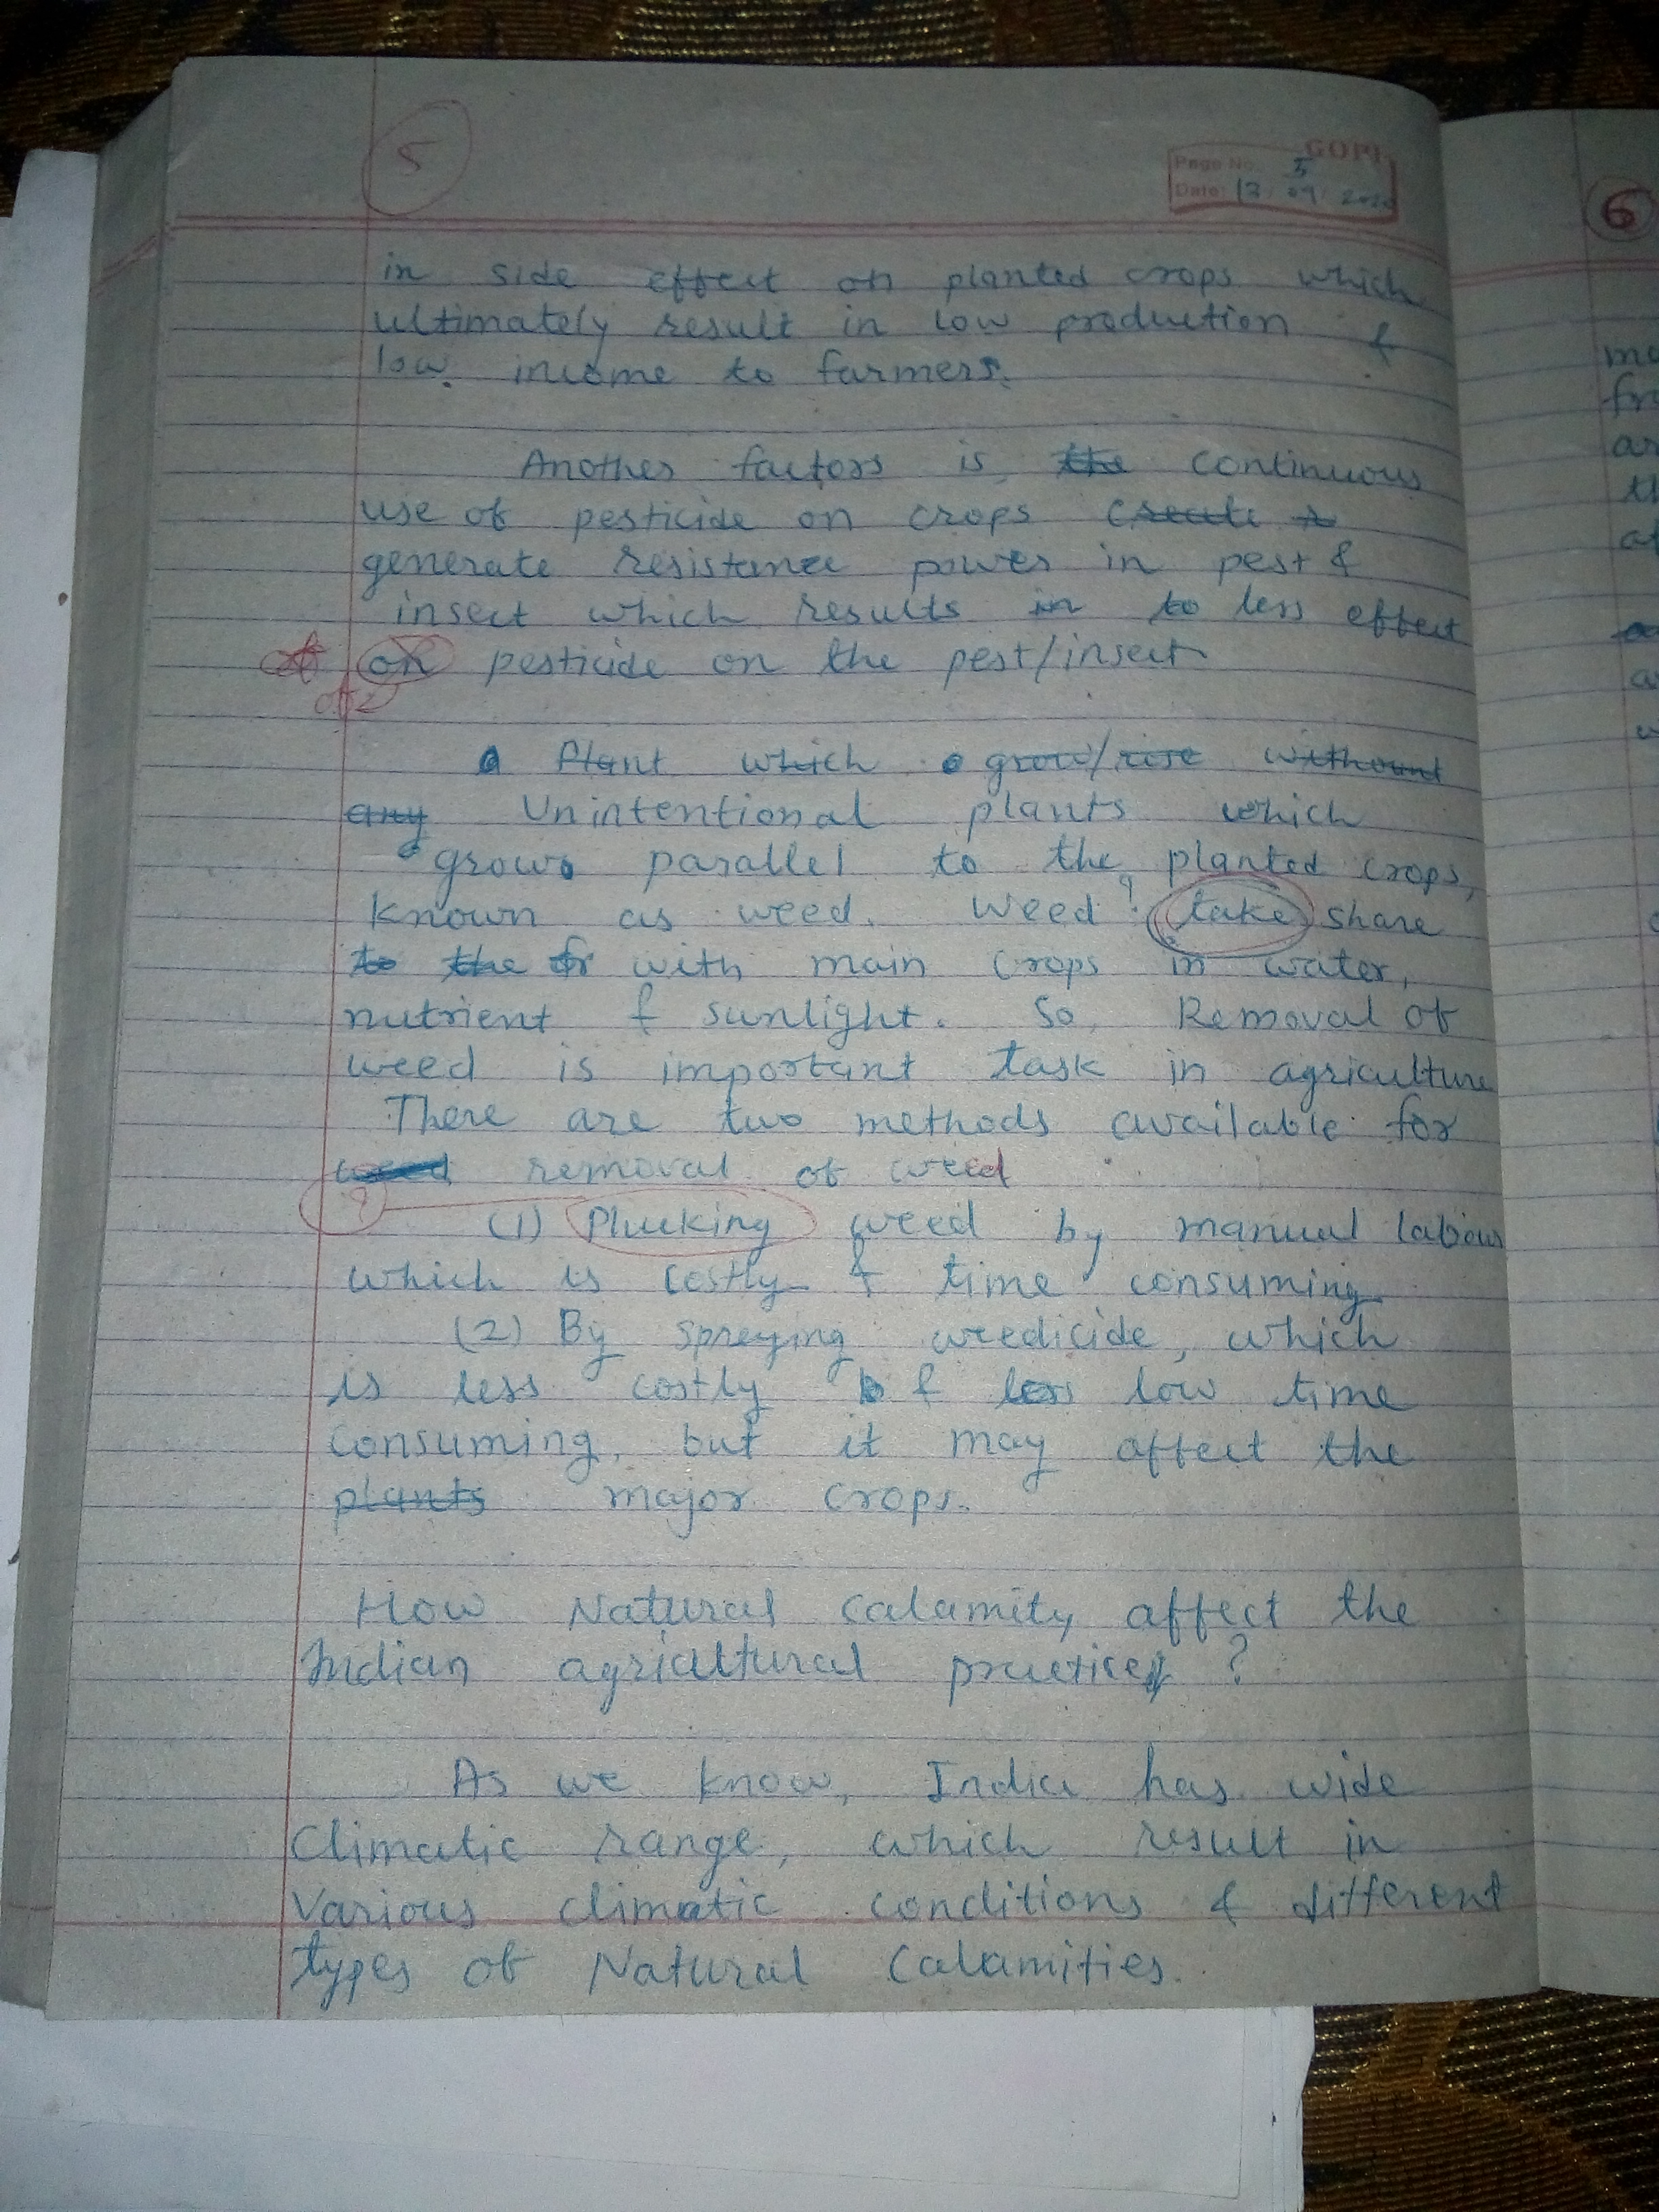 5
GOPI
Page No. 5
Date: 13 / 09 / 2020
in side effect on planted crops which
ultimately result in low production &
low income to farmers.
Another factors is the continuous
use of pesticide on crops create
generate resistance power in pest &
insect which results in to less effect
on pesticide on the pest/insect
of
Plant which grow/rise without
any Unintentional plants which
grow parallel to the planted crops,
known as weed. Weed take share
to the fr with main crops in water,
nutrient & sunlight. So, Removal of
weed is important task in agriculture
There are two methods available for
weed removal of weed
?
(1) Plucking weed by manual labour
which is costly & time consuming.
(2) By spreying weedicide, which
is less costly & less low time
consuming, but it may affect the
plants major crops.
How Natural calamity affect the
Indian agricultural practices ?
As we know, India has wide
Climatic range, which result in
Various climatic conditions & different
types of Natural Calamities.
6